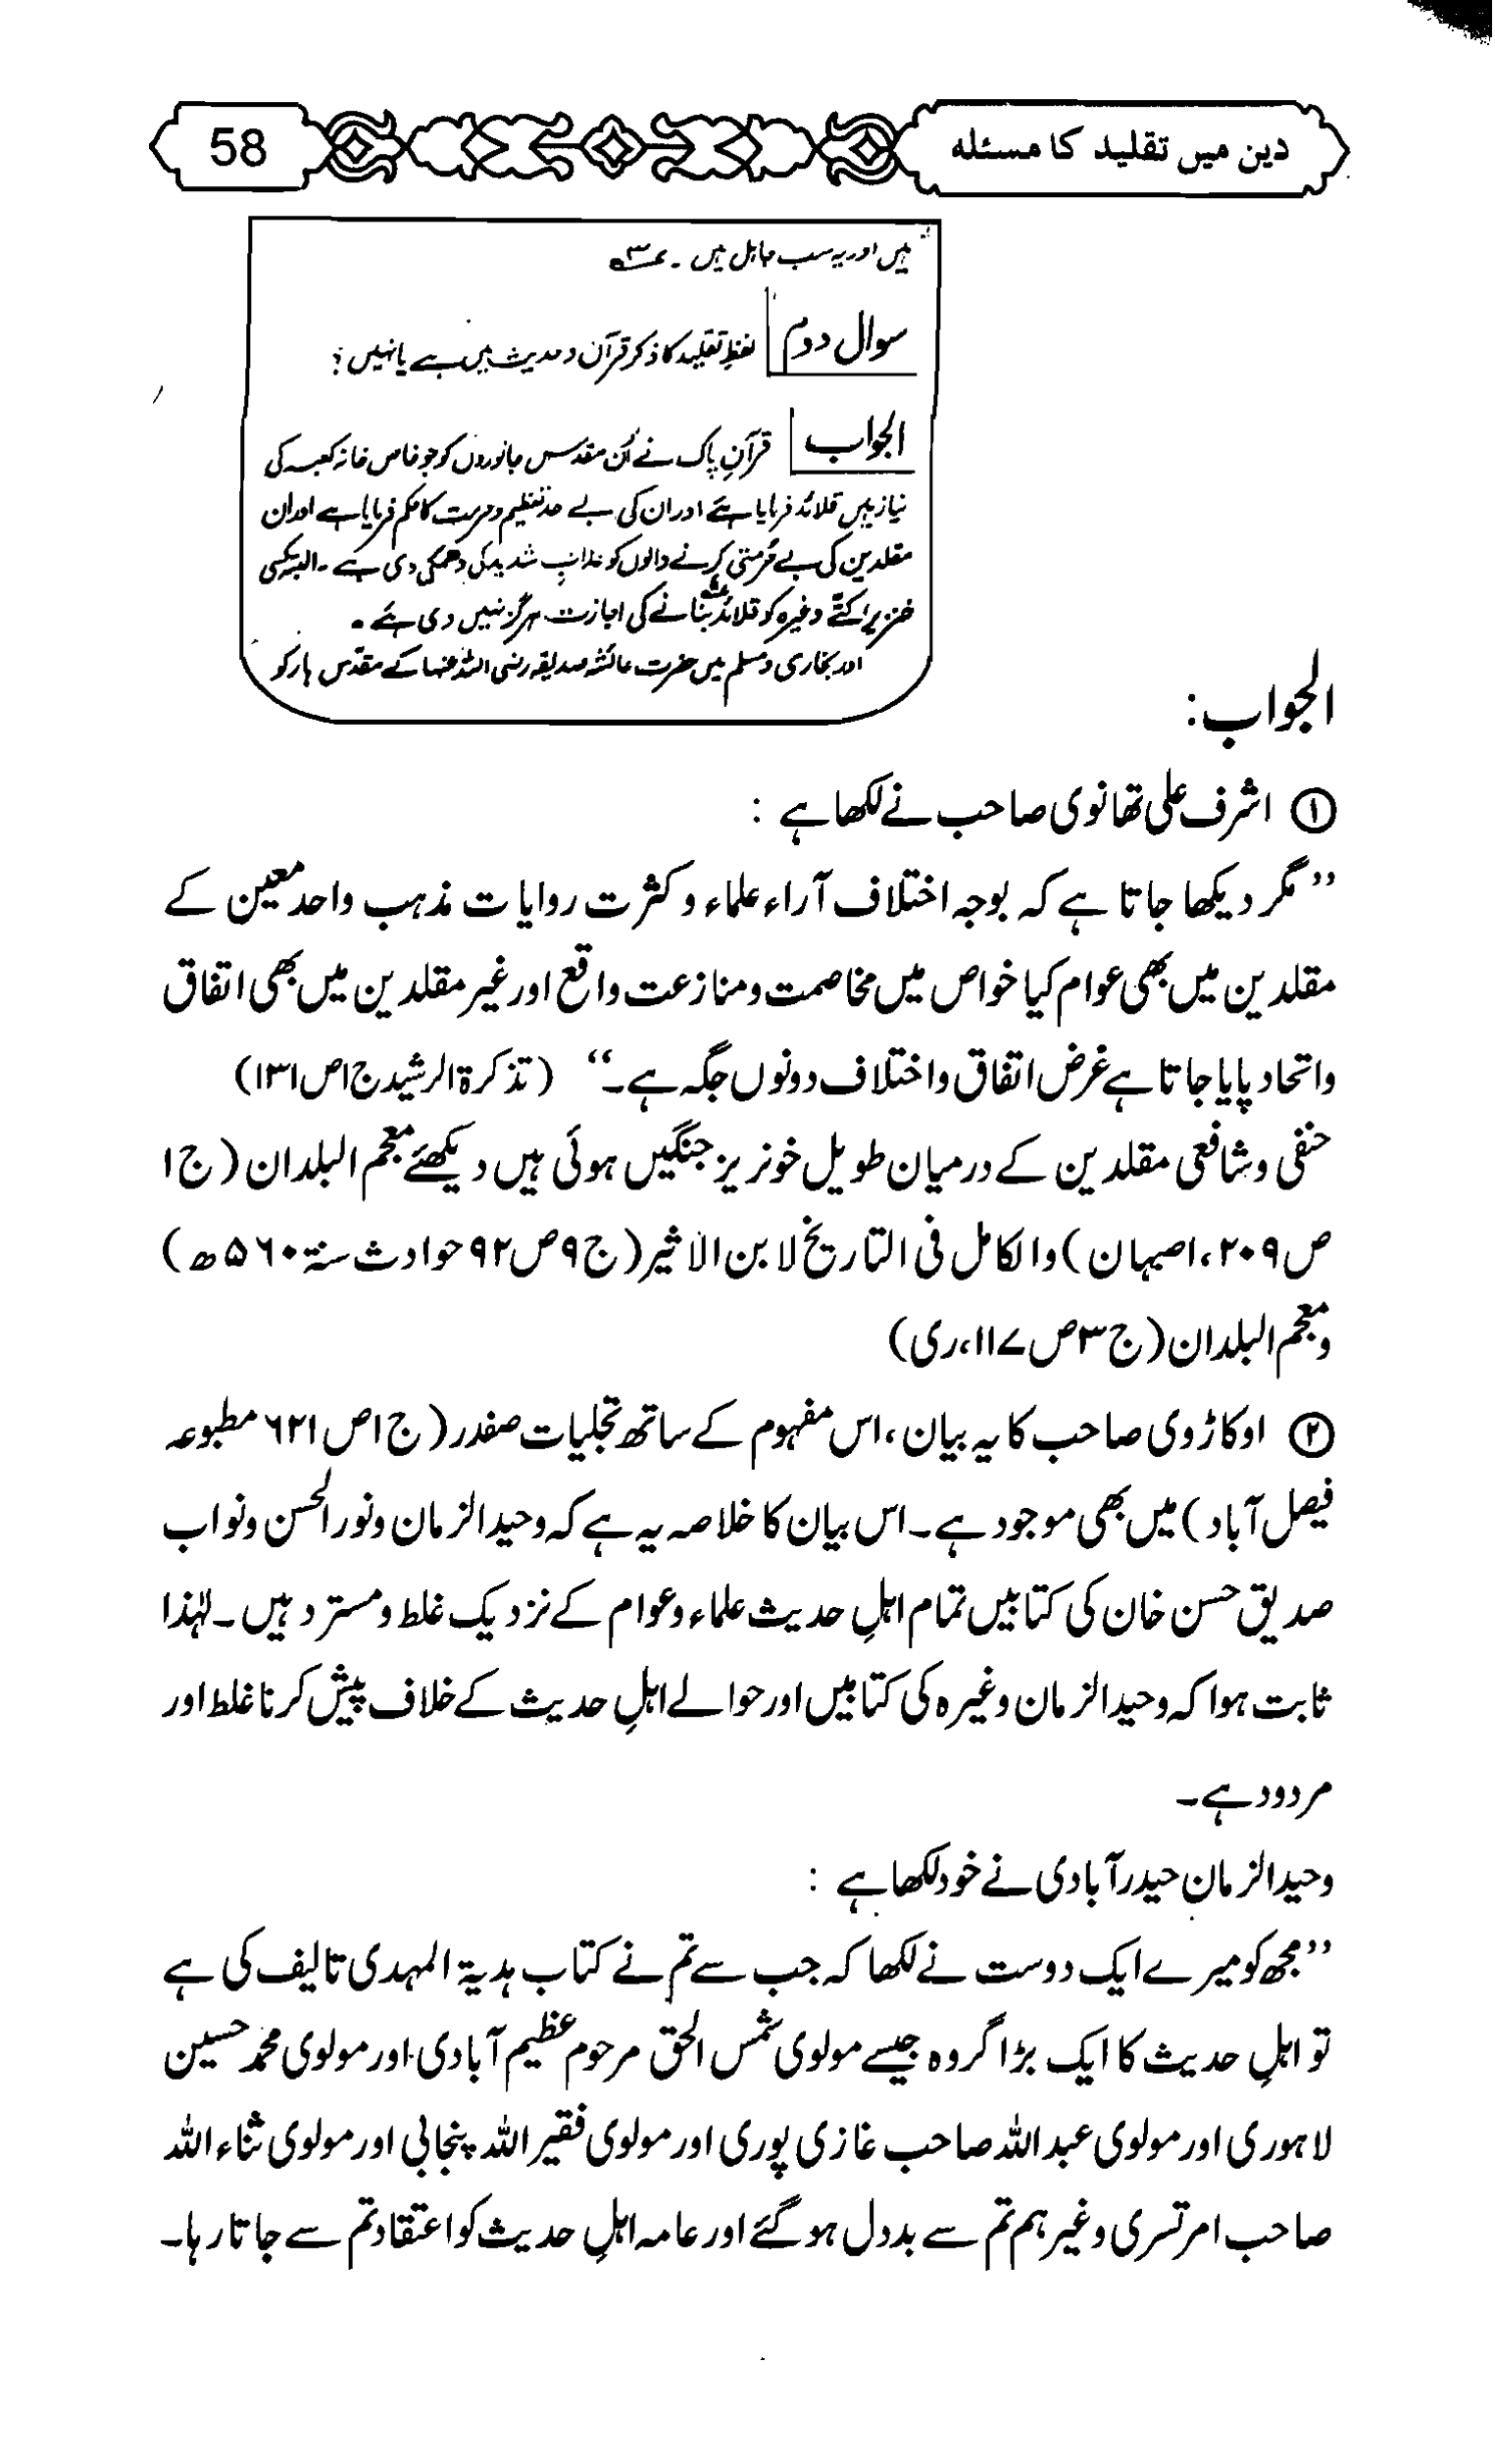 دین میں تقلید کا مسئلہ 58
ہیں اور یہ سب جاہل ہیں۔
سوال دوم لفظِ تقلید کا ذکر قرآن و حدیث میں ہے یا نہیں؟
الجواب قرآنِ پاک نے اُن مقدس جانوروں کو جو خاص خانہ کعبہ کی
نیاز ہیں قلائد فرمایا ہے اور ان کی بے حد تعظیم و حرمت کا حکم فرمایا ہے اور ان
مقلدین کی بے حُرمتی کرنے والوں کو عذابِ شدید کی دھمکی دی ہے۔ البتہ کسی
خنزیر، کتے وغیرہ کو قلائد بنانے کی اجازت ہرگز نہیں دی ہے۔
اور بخاری و مسلم میں حضرت عائشہ صدیقہ رضی اللہ عنہا کے مقدّس ہار کو
الجواب:
① اشرف علی تھانوی صاحب نے لکھا ہے :
’’مگر دیکھا جاتا ہے کہ بوجہ اختلاف آراء علماء و کثرت روایات مذہب واحد معین کے
مقلدین میں بھی عوام کیا خواص میں مخاصمت ومنازعت واقع اور غیر مقلدین میں بھی اتفاق
واتحاد پایا جاتا ہے غرض اتفاق واختلاف دونوں جگہ ہے۔‘‘ (تذکرۃ الرشید ج۱ص۱۳۱)
حنفی وشافعی مقلدین کے درمیان طویل خونریز جنگیں ہوئی ہیں دیکھئے معجم البلدان (ج۱
ص۲۰۹، اصبہان) والکامل فی التاریخ لابن الاثیر (ج۹ص۹۲ حوادث سنۃ ۵۶۰ھ)
ومعجم البلدان (ج۳ص۱۱۷، ری)
② اوکاڑوی صاحب کا یہ بیان، اس مفہوم کے ساتھ تجلیات صفدر (ج۱ص۶۲۱ مطبوعہ
فیصل آباد) میں بھی موجود ہے۔ اس بیان کا خلاصہ یہ ہے کہ وحیدالزمان ونورالحسن ونواب
صدیق حسن خان کی کتابیں تمام اہلِ حدیث علماء وعوام کے نزدیک غلط ومسترد ہیں۔ لہٰذا
ثابت ہوا کہ وحیدالزمان وغیرہ کی کتابیں اور حوالے اہلِ حدیث کے خلاف پیش کرنا غلط اور
مردود ہے۔
وحیدالزمان حیدرآبادی نے خود لکھا ہے :
’’مجھ کو میرے ایک دوست نے لکھا کہ جب سے تم نے کتاب ہدیۃ المہدی تالیف کی ہے
تو اہلِ حدیث کا ایک بڑا گروہ جیسے مولوی شمس الحق مرحوم عظیم آبادی اور مولوی محمد حسین
لاہوری اور مولوی عبداللہ صاحب غازی پوری اور مولوی فقیر اللہ پنجابی اور مولوی ثناء اللہ
صاحب امرتسری وغیرہم تم سے بددل ہو گئے اور عامہ اہلِ حدیث کو اعتقاد تم سے جاتا رہا۔